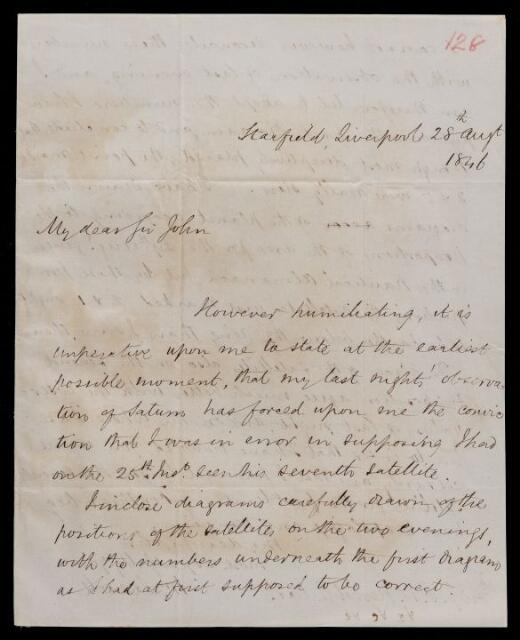 128
Starfield, Liverpool 28th Augt
1846
My dear Sir John
However humiliating, it is
imperative upon me to state at the earliest
possible moment, that my last night's observa-
tion of Saturn has forced upon me the convic-
tion that I was in error in supposing I had
on the 25th Inst. seen his seventh satellite.
I inclose diagrams carefully drawn of the
positions of the satellites on the two evenings,
with the numbers underneath the first diagram
as I had at first supposed to be correct.